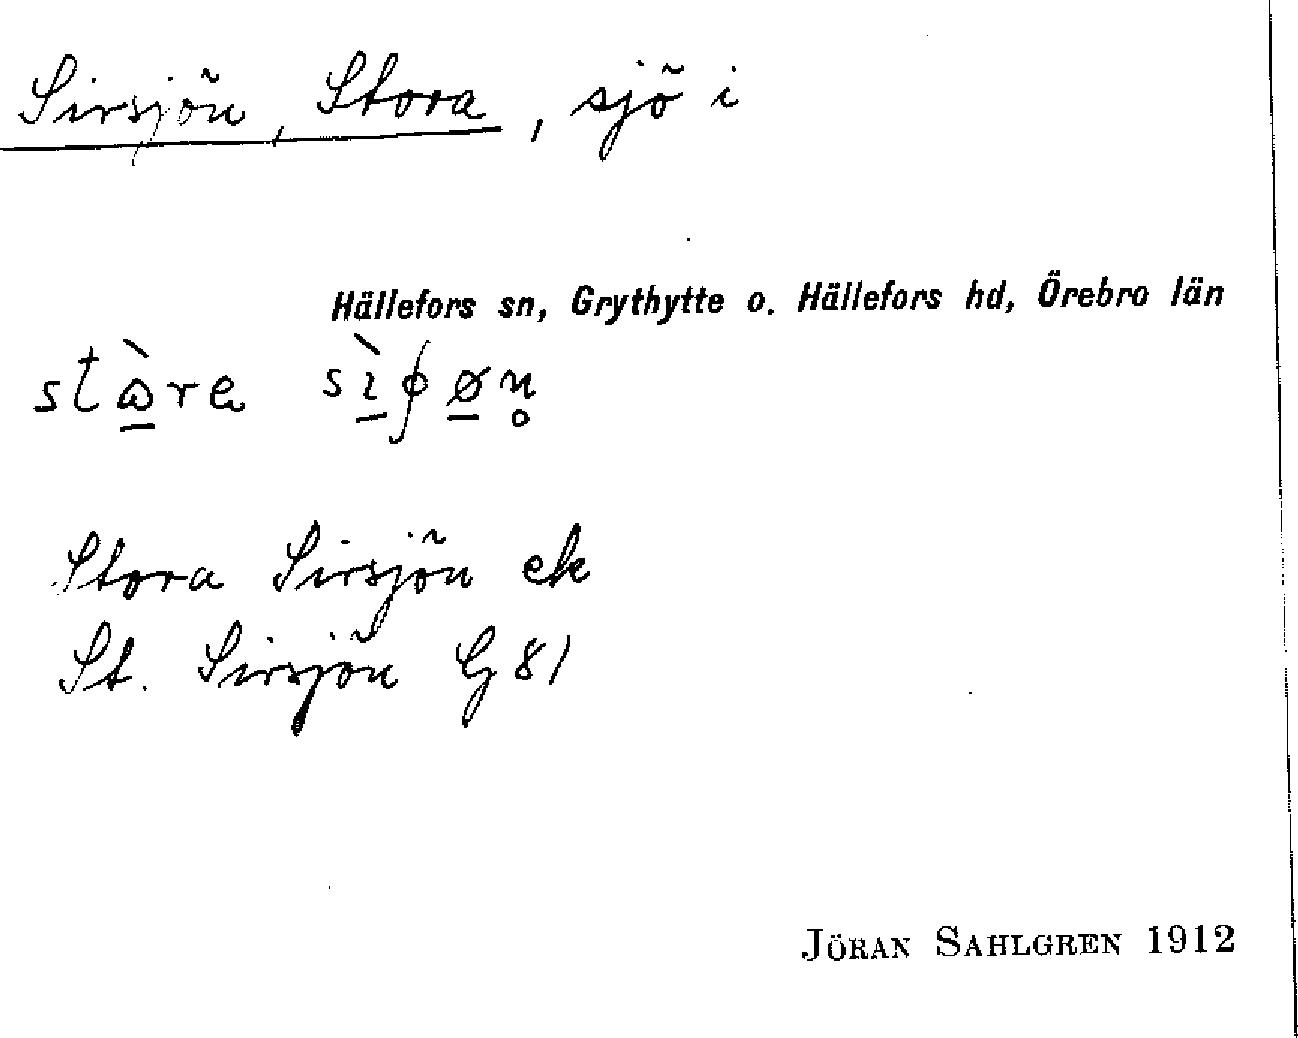 Sirsjön, Stora, sjö i
Hällefors sn, Grythytte o. Hällefors hd, Örebro län
Stora Sirsjön ek
St. Sirsjön G 81
JÖRAN SAHLGREN 1912